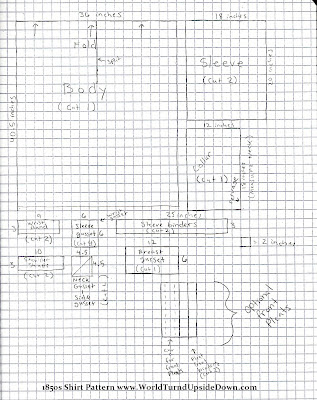 36 inches
18 inches
Fold
Slit
Body
(cut 1)
Sleeve
(cut 2)
20 inches
40.5 inches
12 inches
Collar
(cut 1)
9
Wrist
Band
(cut 2)
3
6
Sleeve
gusset
6
(cut 4)
25 inches
Sleeve binders
(cut 2)
3
10
(cut 2)
3
4.5
4.5
Neck
Gusset
&
Side
gusset
12
Breast
gusset
(cut 1)
6
2 inches
Optional
Front
Pleats
1850s Shirt Pattern www.WorldTurndUpsideDown.com